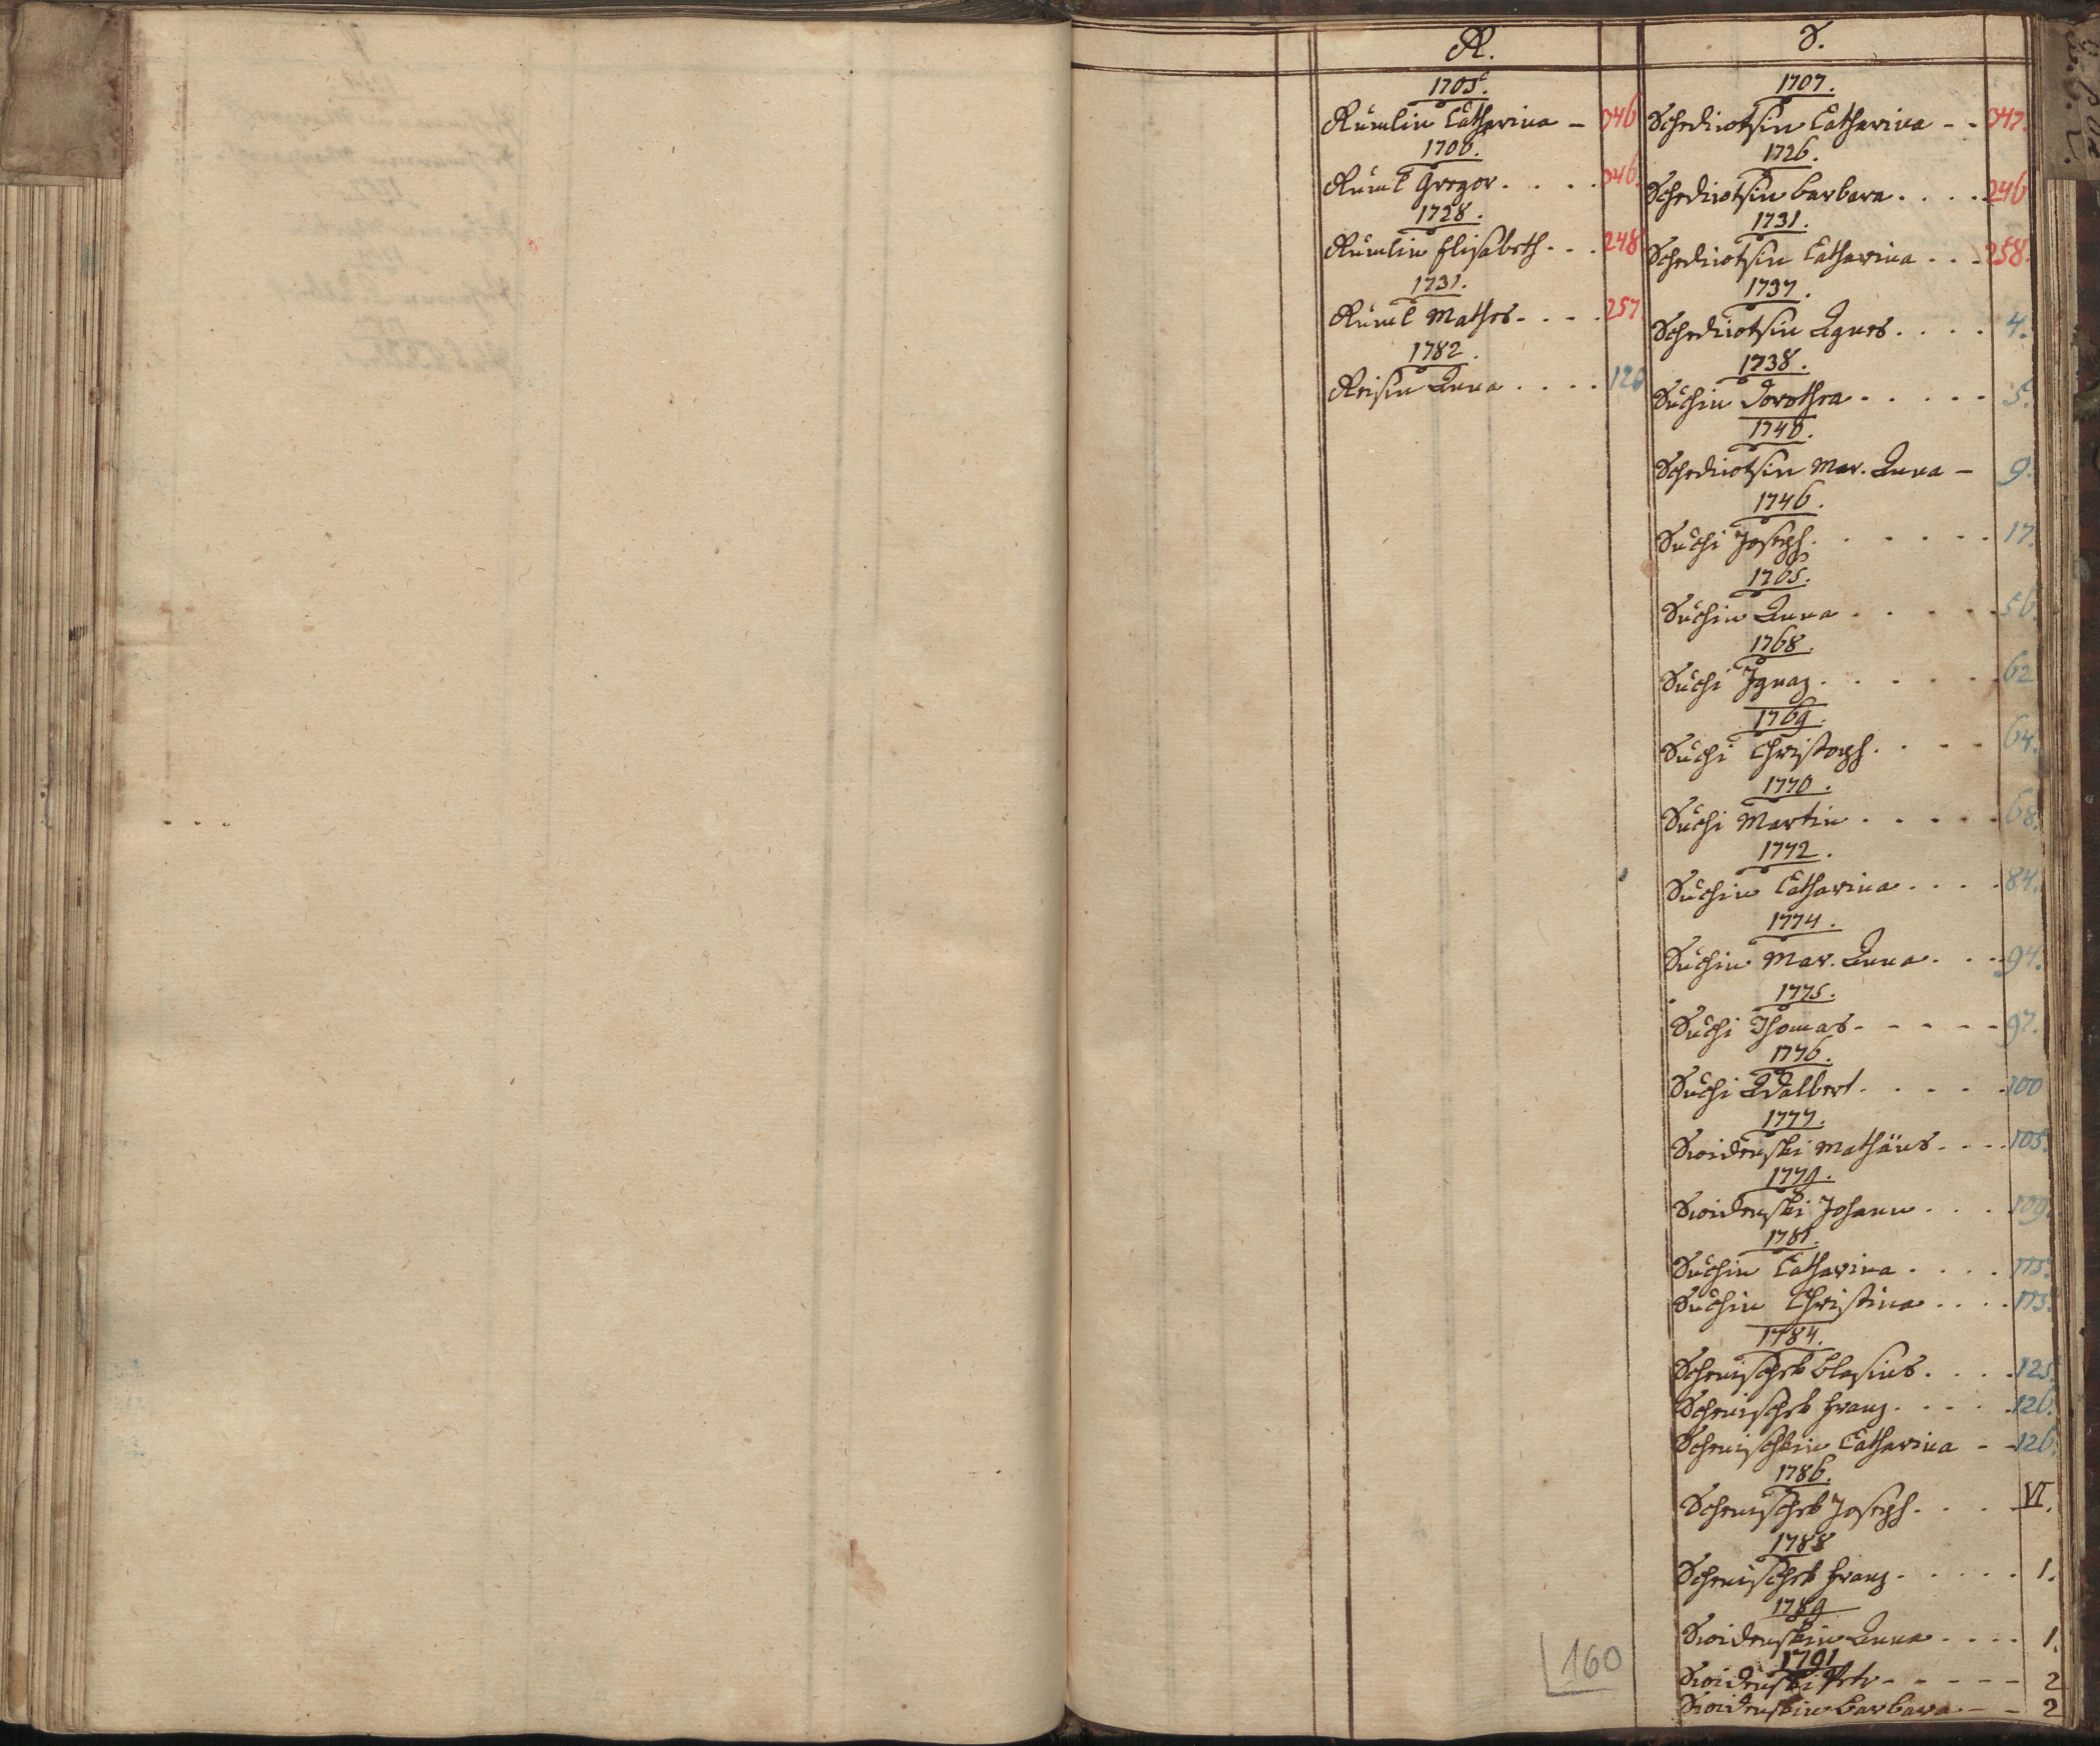 R.
1705.
Rumlin Catharina – 346
1706.
Ruml Gregor. . . . 346.
1728.
Rumlin Elisabeth. . . 248
1731.
Ruml Mathes. . . . 257
1782.
Reisin Anna . . . . 120
S.
1707.
Schediwÿsin Catharina - - 347.
1726.
Schediwÿsin Barbara . . . . . 246
1731.
Schediwÿsin Catharina . . . 258.
1737.
Schediwÿsin Agnes . . . . 4.
1738.
Suchin Dorothea . . . . . 5.
1740.
Schediwÿsin Mar. Anna – 9.
1746.
Suchi Joseph. . . . . . . 17.
1765.
Suchin Anna . . . . . 56.
1768.
Suchi Ignaz. . . . . . . 62
1769.
Suchi Christoph. . . . . 64.
1770.
Suchi Martin . . . . . 68.
1772.
Suchin Catharina . . . . 84.
1774.
Suchin Mar. Anna. . . . 94.
1775.
Suchi Thomas - - - - - 97.
1776.
Suchi Adalbert. . . . . . 100
1777.
Swidenski Mathäus. . . . 105.
1779.
Swidenski Johann . . . . 109.
1781.
Suchin Catharina . . . . 115.
Suchin Christina. . . . 115.
1784.
Schemischek Blasius. . . . 125.
Schemischek Franz. . . . . 126.
Schemischkin Catharina - - 126.
1786.
Schemischek Joseph. . . . VI.
1788
Schemischek Franz. . . . . . 1.
1789
Swidenskin Anna. . . . 1.
1791
Swidenski Petr - - - - - 2
Swidenskin Barbara - - 2
160